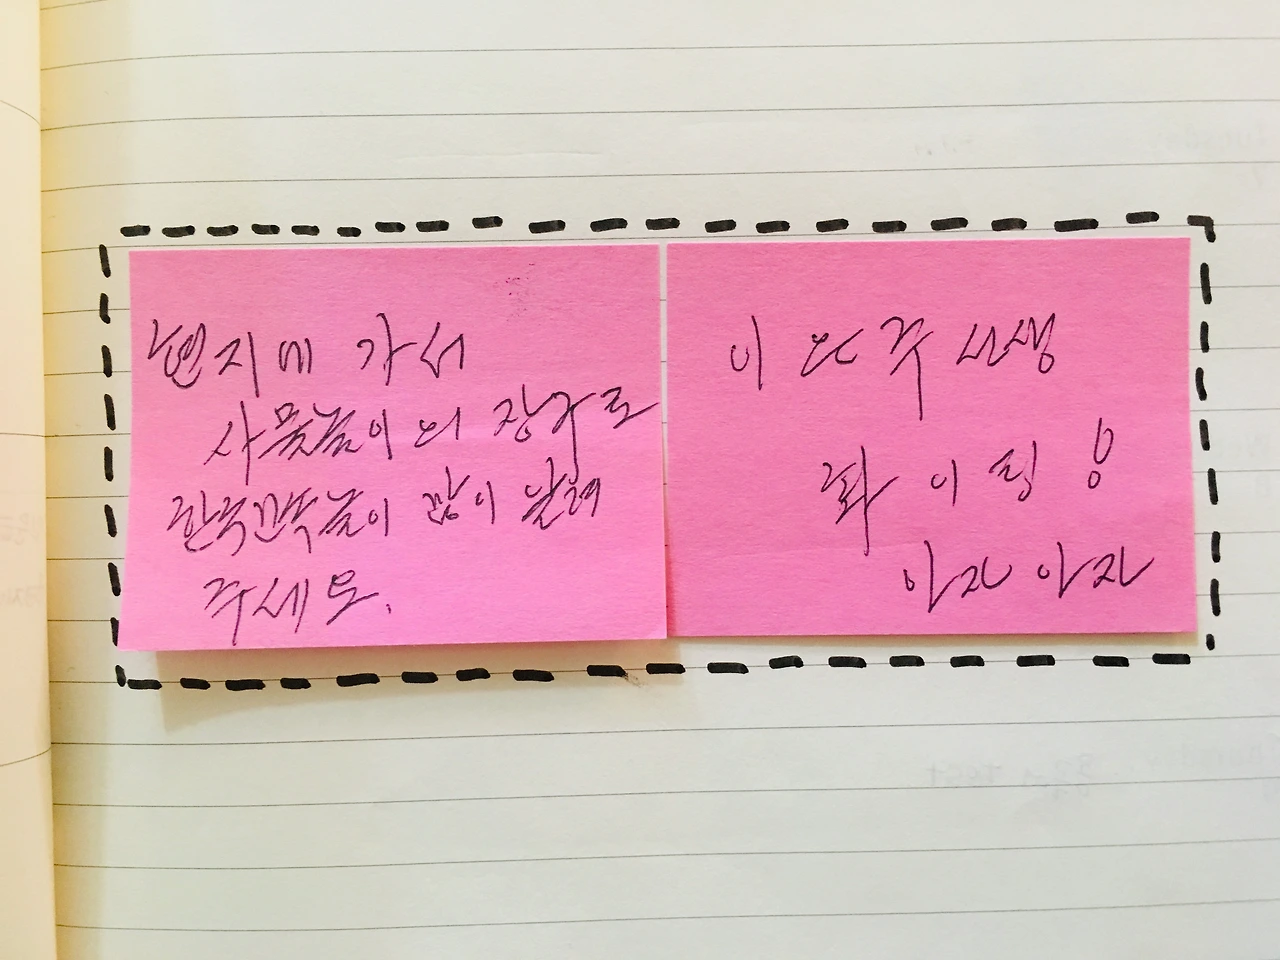 현지에 가서
사물놀이의 장구로
한국민속놀이 많이 날려
주세요.
이 은주 선생
화이팅
아자 아자